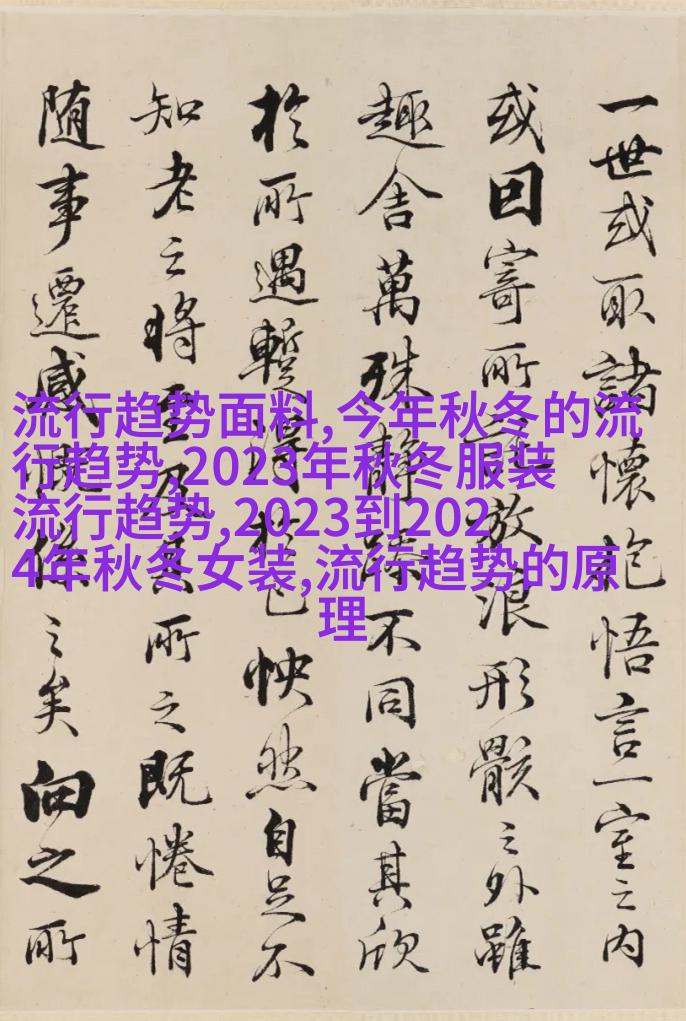 一世或取諸懷抱悟言一室之内
或因寄所託放浪形骸之外雖
趣舍萬殊靜躁不同當其欣
於所遇蹔得於己怏然自足不
知老之將至及其所之既惓情
随事遷感慨係之矣向之所
流行趋势面料,今年秋冬的流
行趋势,2023年秋冬服装
流行趋势,2023到202
4年秋冬女装,流行趋势的原
理